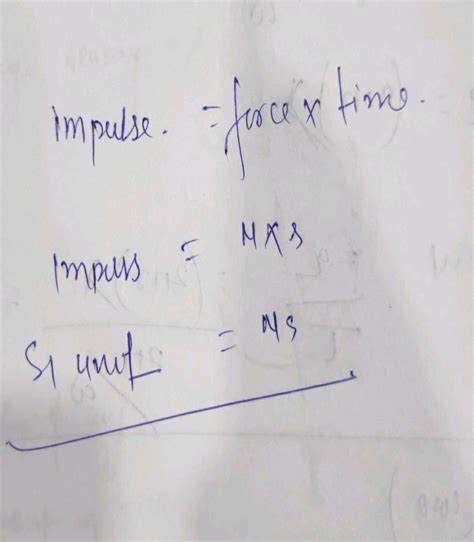 Impulse. = force x time.
Impuls = N x s
SI unit = Ns